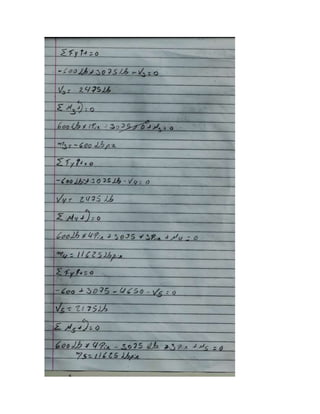 ΣFy↑+=0
-600lb+3075lb-V3=0
V3= 2475lb
Σ M3↺=0
600lb×1Pie - 3075×0+M3=0
m3=-600lbpie
ΣFy↑+=0
-600lb+3075lb-V4=0
V4= 2475lb
Σ M4+↺=0
600lb×4Pie-3075×3Pie+M4=0
m4=11625lbpie
ΣFy↑+=0
-600+3075-4650-V5=0
V5=2175lb
Σ M5+↺=0
600lb×4Pie - 3075lb×3Pie+M5=0
75=11625lbpie